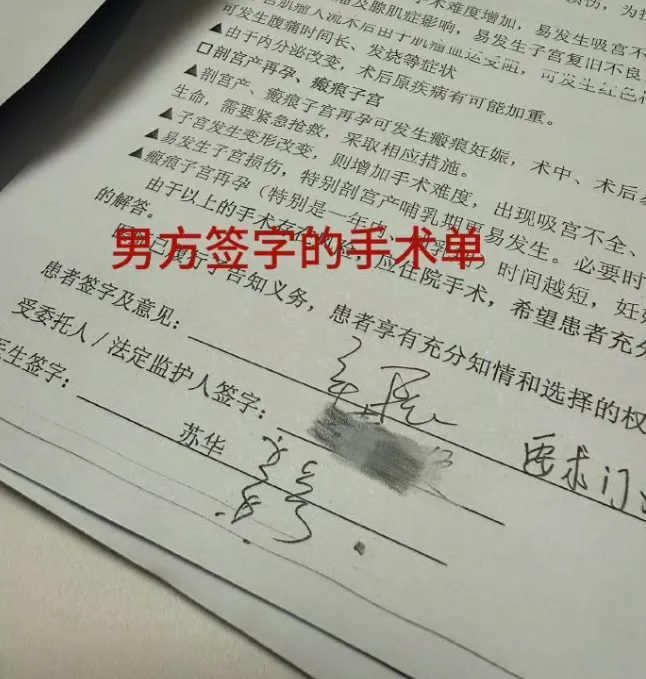 手术难度增加，易发生吸宫不
及腺肌症影响，易发生子宫复旧不良
宫肌瘤人流术后由于肌瘤血运受阻，可发生红色
可发生腹痛时间长、发烧等症状
▲由于内分泌改变，术后原疾病有可能加重。
□剖宫产再孕、瘢痕子宫
▲剖宫产、瘢痕子宫再孕可发生瘢痕妊娠，术中、术后
生命，需要紧急抢救，采取相应措施。
▲子宫发生变形改变，则增加手术难度，出现吸宫不全、
▲易发生子宫损伤，特别剖宫产哺乳期更易发生。必要时
▲瘢痕子宫再孕（特别是一年内 ）时间越短，妊
由于以上的手术存在风险，应住院手术，希望患者充分
的解答。
男方签字的手术单
医师已履行了告知义务，患者享有充分知情和选择的权
患者签字及意见：
要求门
受委托人/法定监护人签字：
医生签字：
苏华